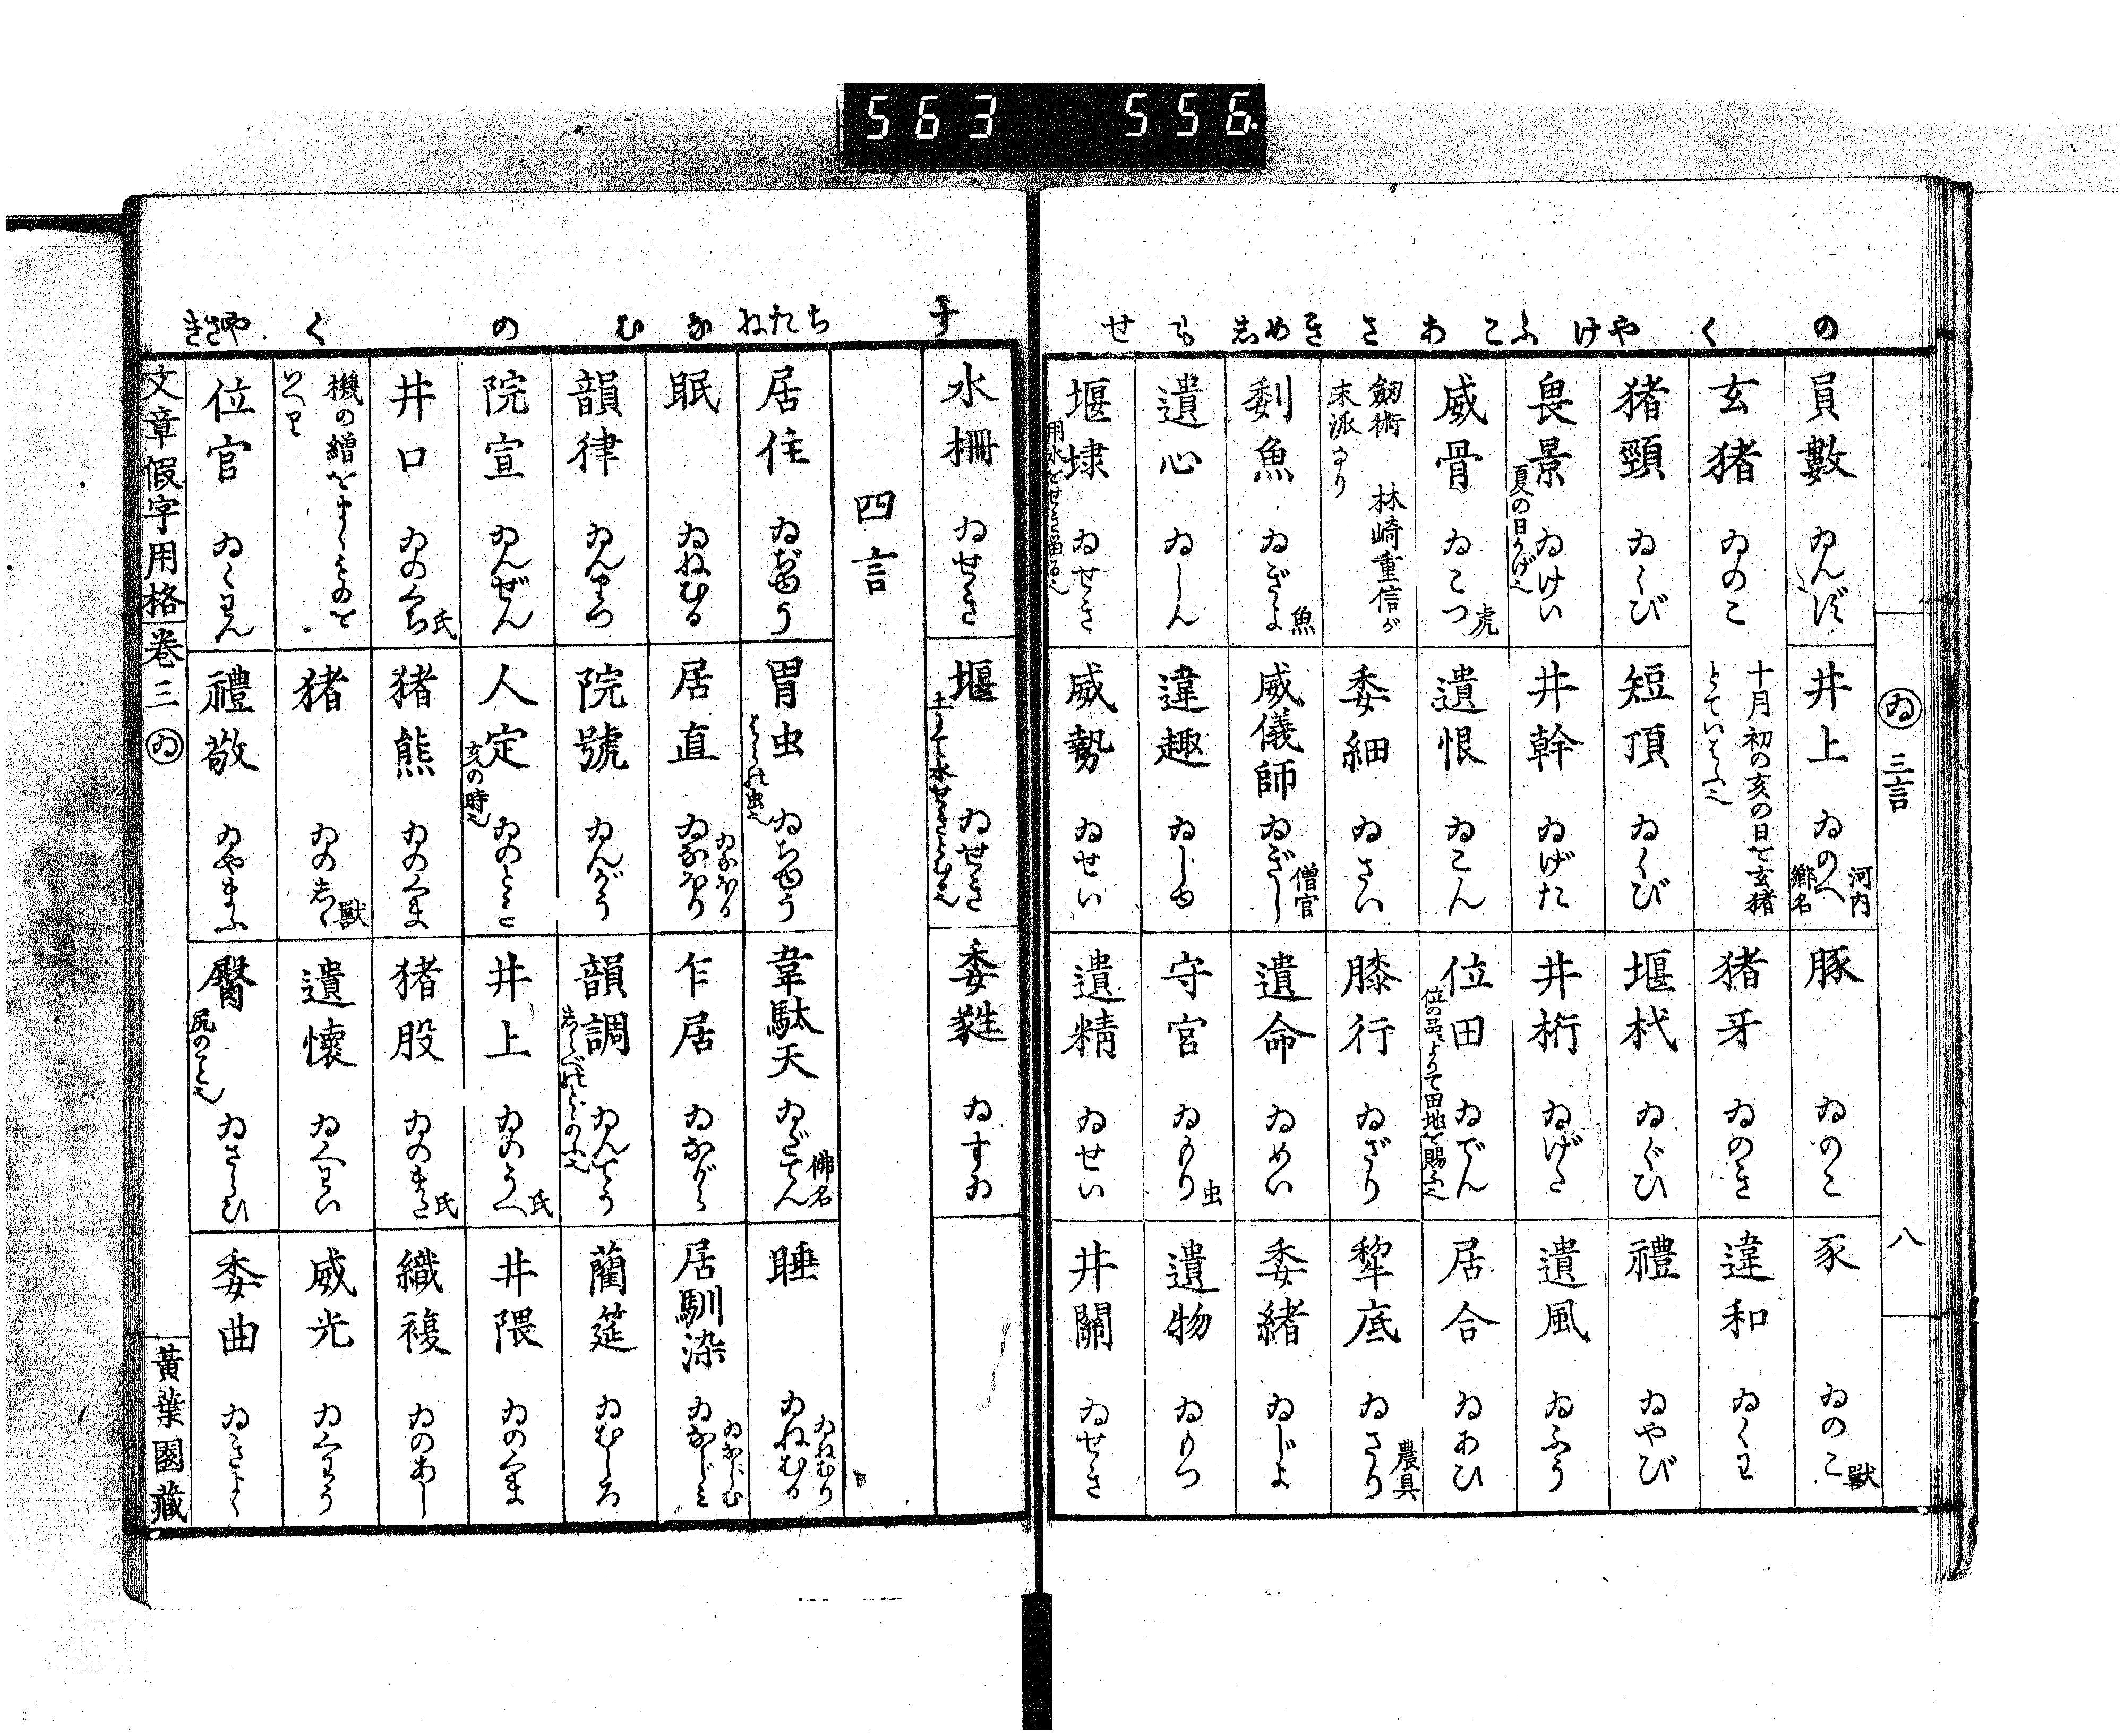 563 556
の く やけ ふ こ あ さ き めし も せ
ゐ 三言 八
員數 ゐんず
井上 ゐのへ 河内 郷名
豚 ゐのこ
豕 ゐのこ 獣
玄猪 ゐのこ 十月初の亥の日を玄猪
猪牙 ゐのき
違和 ゐくわ
猪頸 ゐくび
短頂 ゐくび
堰杙 ゐぐひ
禮 ゐやび
畏景 ゐけい 夏の日かげ也
井幹 ゐげた
井桁 ゐげた
遺風 ゐふう
威骨 ゐこつ 虎
遺恨 ゐこん
位田 ゐでん 位の品によりて田地を賜ふ也
居合 ゐあひ
劔術 林崎重信が末派なり
委細 ゐさい
膝行 ゐざり
犂底 ゐさり 農具
劋魚 ゐぎよ 魚
威儀師 ゐぎし 僧官
遺命 ゐめい
委緒 ゐじよ
遺心 ゐしん
違趣 ゐしゆ
守宮 ゐもり 虫
遺物 ゐもつ
堰埭 ゐせき
威勢 ゐせい
遺精 ゐせい
井關 ゐせき
す ち たね な む の く やさき
水柵 ゐせき
堰 ゐせき
委蕤 ゐすゐ
四言
居住 ゐぢゆう
胃虫 ゐちゆう
韋駄天 ゐだてん 佛名
睡 ゐねむる ゐねむり
眠 ゐねむる
居直 ゐなほり ゐなほる
乍居 ゐながら
居馴染 ゐなじみ ゐなじむ
韻律 ゐんりつ
院號 ゐんがう
韻調 ゐんてう
藺筵 ゐむしろ
院宣 ゐんぜん
人定 ゐのとき 亥の時也
井上 ゐのうへ 氏
井隈 ゐのくま
井口 ゐのくち 氏
猪熊 ゐのくま
猪股 ゐのまた 氏
織複 ゐのあし
機の繒をまくものを いへり
猪 ゐのしし 獣
遺懷 ゐくわい
威光 ゐくわう
位官 ゐくわん
禮敬 ゐやまふ
臀 ゐさらひ 尻のこと也
委曲 ゐきよく
文章假字用格 卷三 ゐ 黃葉園藏